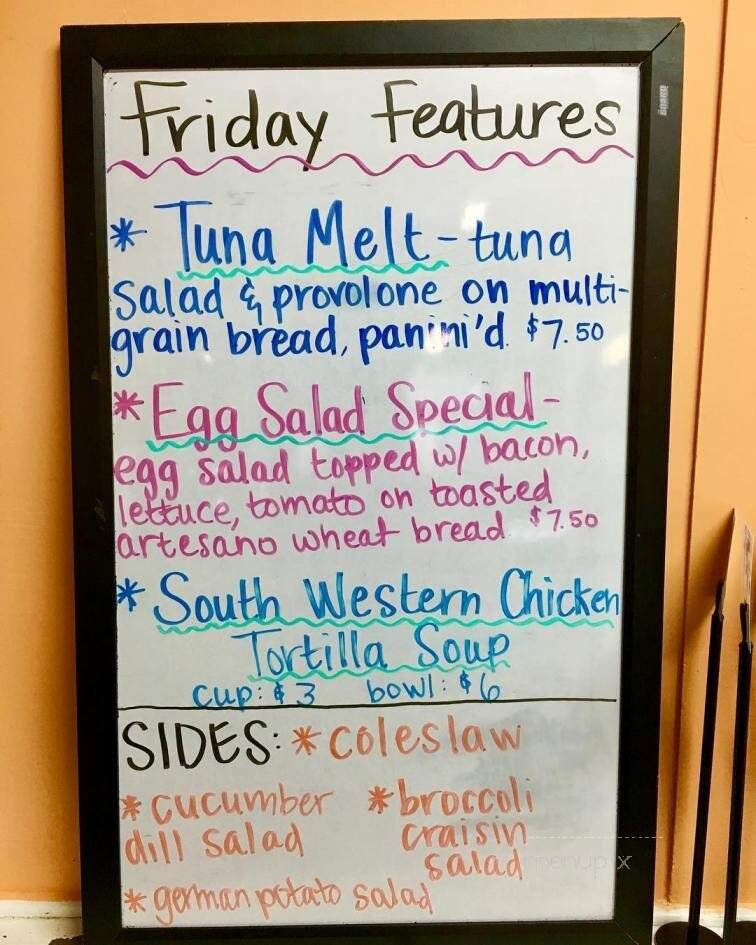 Friday Features
* Tuna Melt - tuna
salad & provolone on multi-
grain bread, panini'd. $7.50
* Egg Salad Special -
egg salad topped w/ bacon,
lettuce, tomato on toasted
artesano wheat bread. $7.50
* South Western Chicken
Tortilla Soup
cup: $3 bowl: $6
SIDES: * coleslaw
* cucumber dill salad
* broccoli craisin salad
* german potato salad